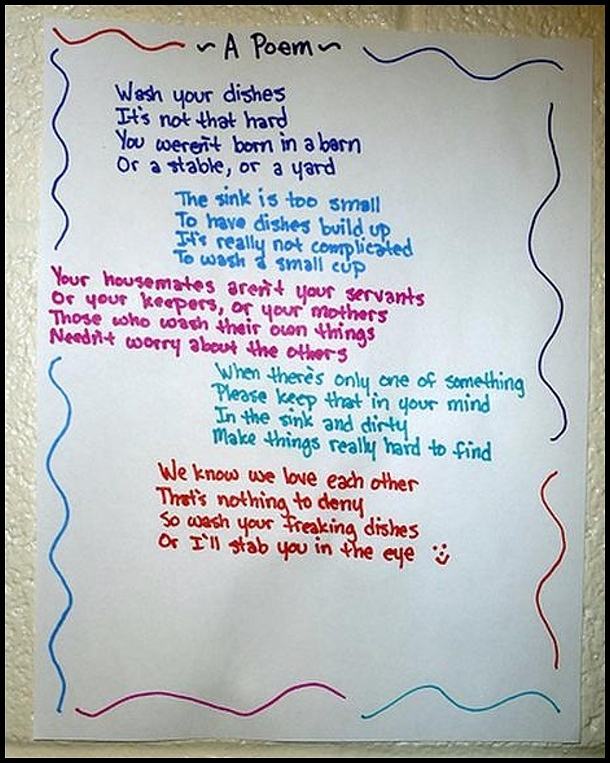 ~ A Poem ~
Wash your dishes
It's not that hard
You weren't born in a barn
Or a stable, or a yard
The sink is too small
To have dishes build up
It's really not complicated
To wash a small cup
Your housemates aren't your servants
Or your keepers, or your mothers
Those who wash their own things
Needn't worry about the others
When there's only one of something
Please keep that in your mind
In the sink and dirty
Make things really hard to find
We know we love each other
That's nothing to deny
So wash your freaking dishes
Or I'll stab you in the eye :)